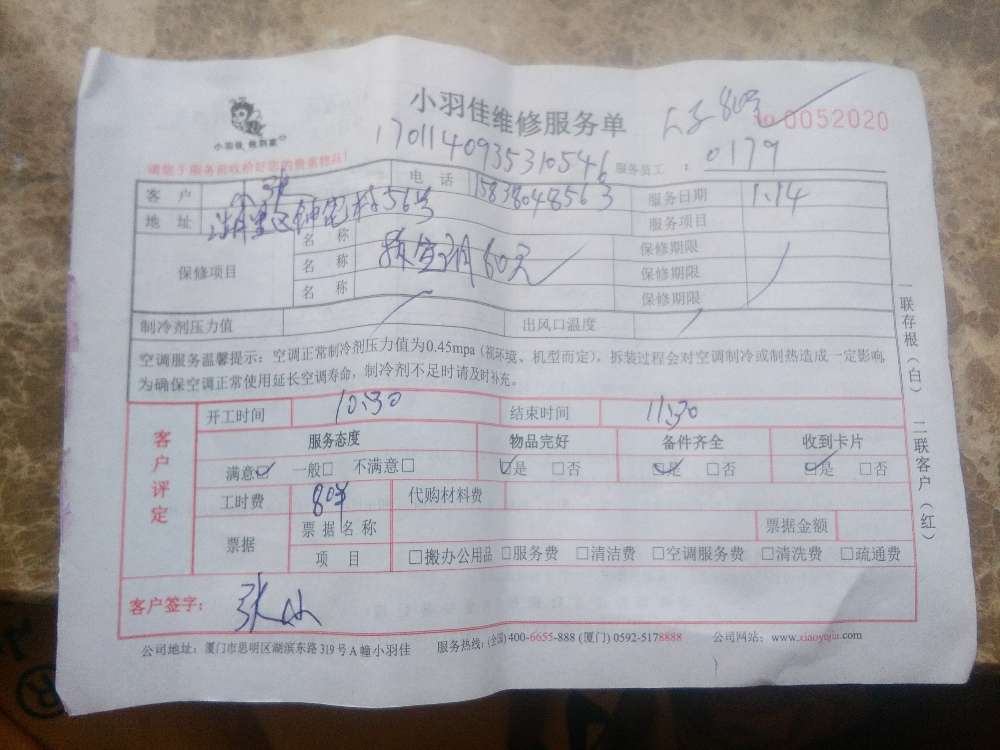 小羽佳维修服务单
80号
0052020
小羽佳 佳到家
1701140935310546
服务员工：0179
请您于服务前收拾好您的贵重物品！
客户 小张 电话 15838048563 服务日期 1.14
地址 56号 服务项目
保修项目 名称 保修期限
名称 60天 保修期限
名称 保修期限
制冷剂压力值 出风口温度
空调服务温馨提示：空调正常制冷剂压力值为0.45mpa（视环境、机型而定），拆装过程会对空调制冷或制热造成一定影响，
为确保空调正常使用延长空调寿命，制冷剂不足时请及时补充。
客户评定
开工时间 10:30 结束时间 11:30
服务态度 物品完好 备件齐全 收到卡片
满意☑ 一般□ 不满意□ ☑是 □否 ☑是 □否 ☑是 □否
工时费 80 代购材料费
票据 票据名称 票据金额
项目 □搬办公用品 □服务费 □清洁费 □空调服务费 □清洗费 □疏通费
客户签字：张
公司地址：厦门市思明区湖滨东路319号A幢小羽佳 服务热线：(全国) 400-6655-888 (厦门) 0592-5178888 公司网站：www.xiaoyujia.com
一联存根（白） 二联客户（红）